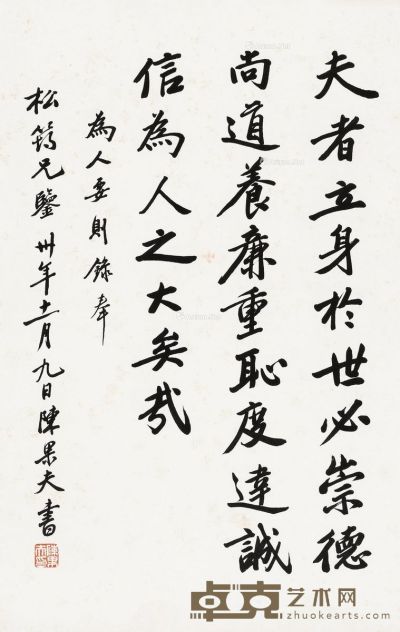 夫者立身於世必崇德
尚道養廉重恥度達誠
信為人之大矣哉
為人要則錄奉
松筠兄鑒 卅年十一月九日陳果夫書
卓克艺术网
zhuokearts.com